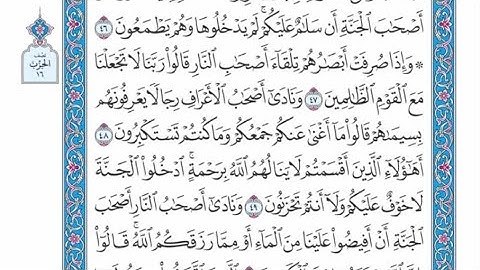 أَصْحَابَ الْجَنَّةِ أَن سَلَامٌ عَلَيْكُمْ ۚ لَمْ يَدْخُلُوهَا وَهُمْ يَطْمَعُونَ ٤٦
۞ وَإِذَا صُرِفَتْ أَبْصَارُهُمْ تِلْقَاءَ أَصْحَابِ النَّارِ قَالُوا رَبَّنَا لَا تَجْعَلْنَا
مَعَ الْقَوْمِ الظَّالِمِينَ ٤٧ وَنَادَىٰ أَصْحَابُ الْأَعْرَافِ رِجَالًا يَعْرِفُونَهُم
بِسِيمَاهُمْ قَالُوا مَا أَغْنَىٰ عَنكُمْ جَمْعُكُمْ وَمَا كُنتُمْ تَسْتَكْبِرُونَ ٤٨
أَهَٰؤُلَاءِ الَّذِينَ أَقْسَمْتُمْ لَا يَنَالُهُمُ اللَّهُ بِرَحْمَةٍ ۚ ادْخُلُوا الْجَنَّةَ
لَا خَوْفٌ عَلَيْكُمْ وَلَا أَنتُمْ تَحْزَنُونَ ٤٩ وَنَادَىٰ أَصْحَابُ النَّارِ أَصْحَابَ
الْجَنَّةِ أَنْ أَفِيضُوا عَلَيْنَا مِنَ الْمَاءِ أَوْ مِمَّا رَزَقَكُمُ اللَّهُ ۚ قَالُوا
نصف
الحزب
١٦